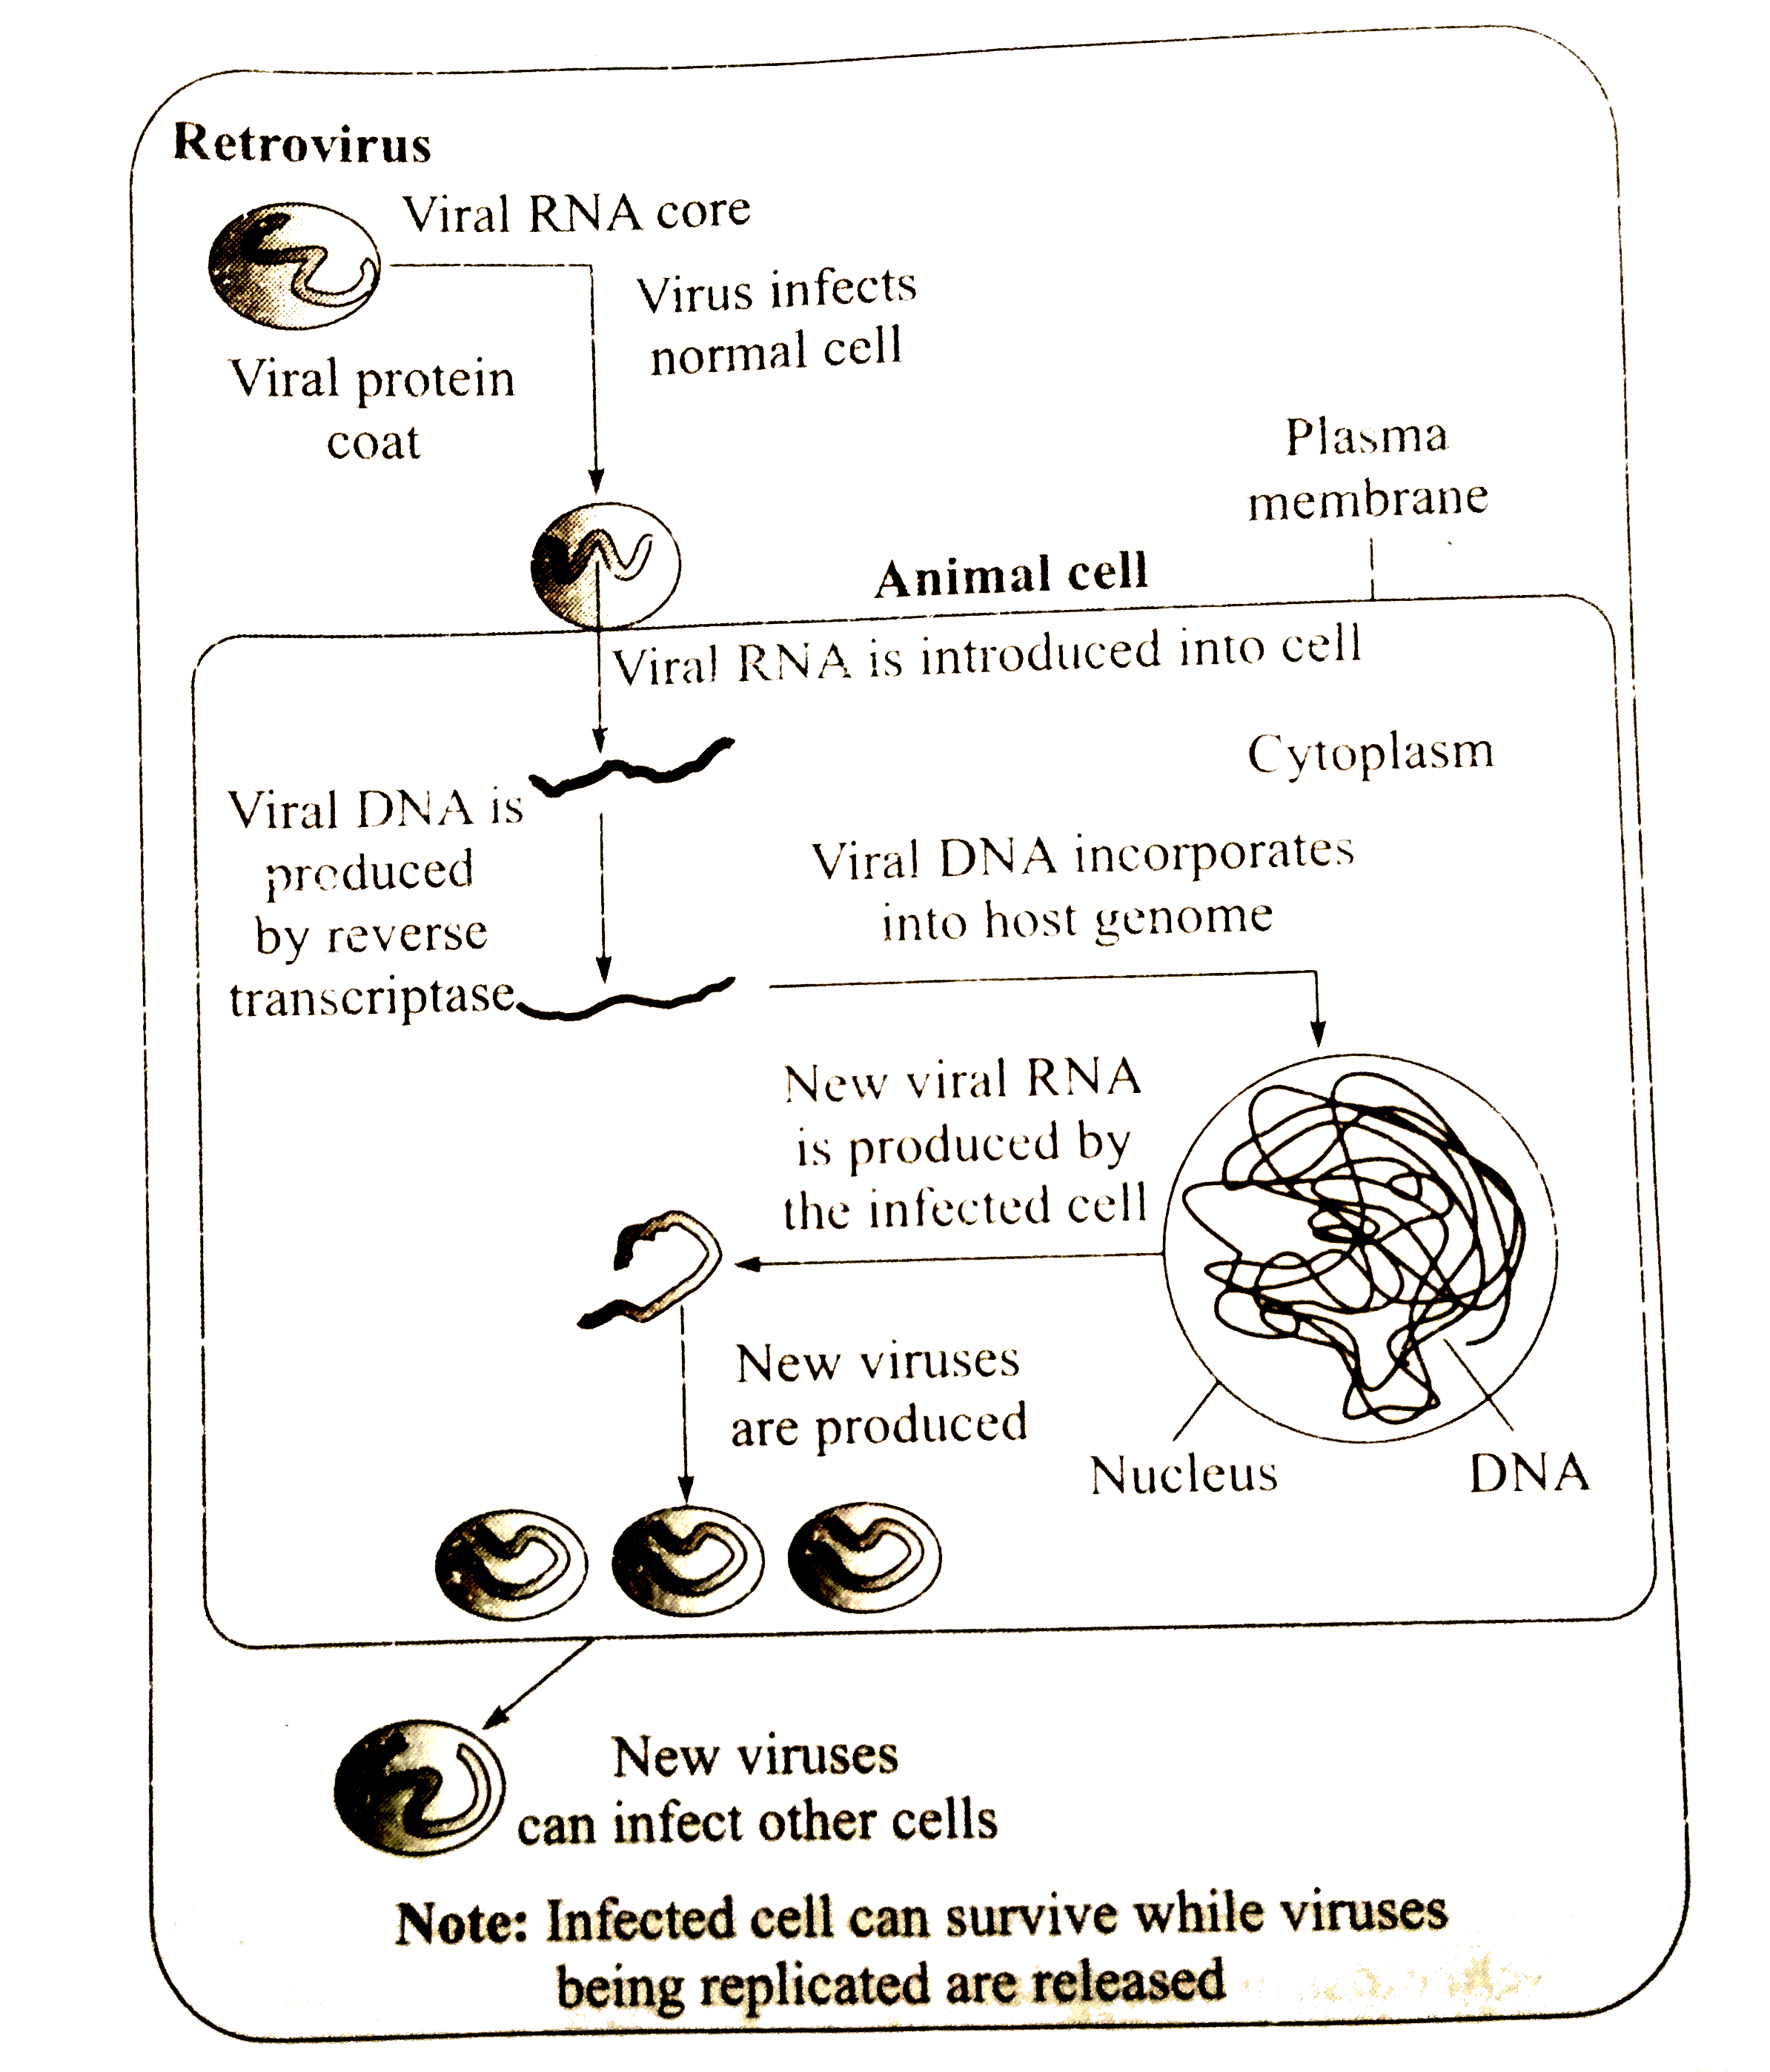 Retrovirus
Viral RNA core
Virus infects
normal cell
Viral protein
coat
Plasma
membrane
Animal cell
Viral RNA is introduced into cell
Cytoplasm
Viral DNA is
produced
by reverse
transcriptase
Viral DNA incorporates
into host genome
New viral RNA
is produced by
the infected cell
New viruses
are produced
Nucleus
DNA
New viruses
can infect other cells
Note: Infected cell can survive while viruses
being replicated are released